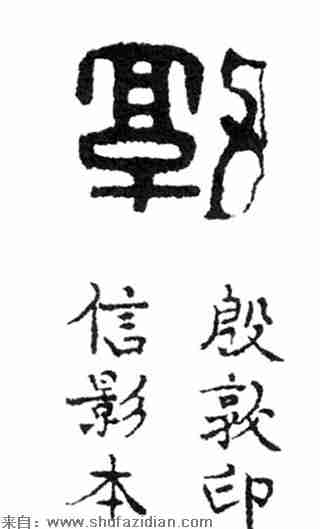 敦
殷敦印
信影本
来自：www.shufazidian.com